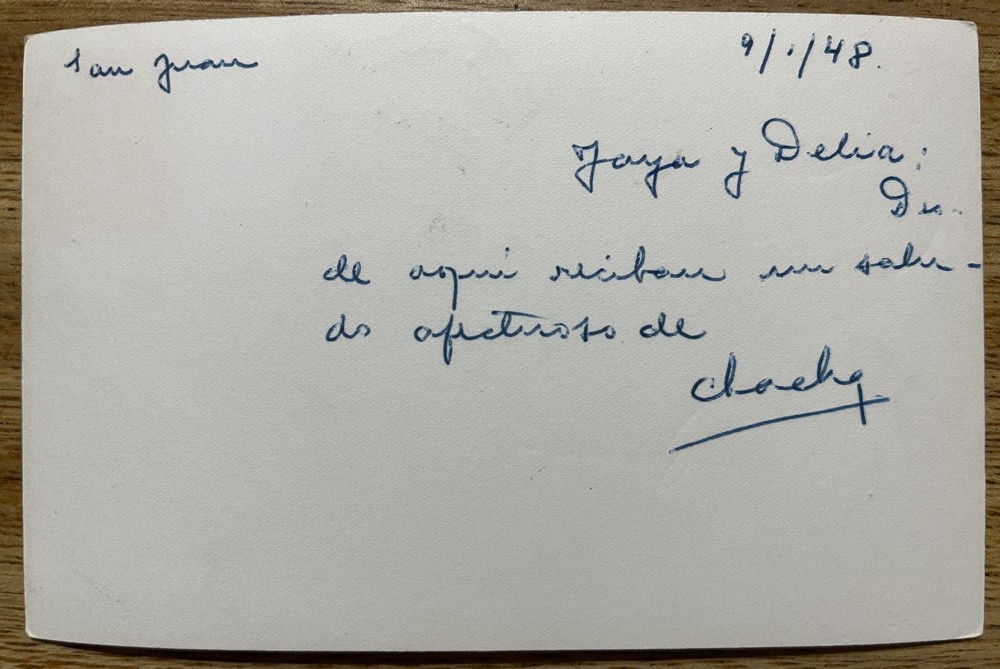 San Juan 9/1/48.
Yaya y Delia:
Des-
de aqui reciban un salu-
do afectuoso de